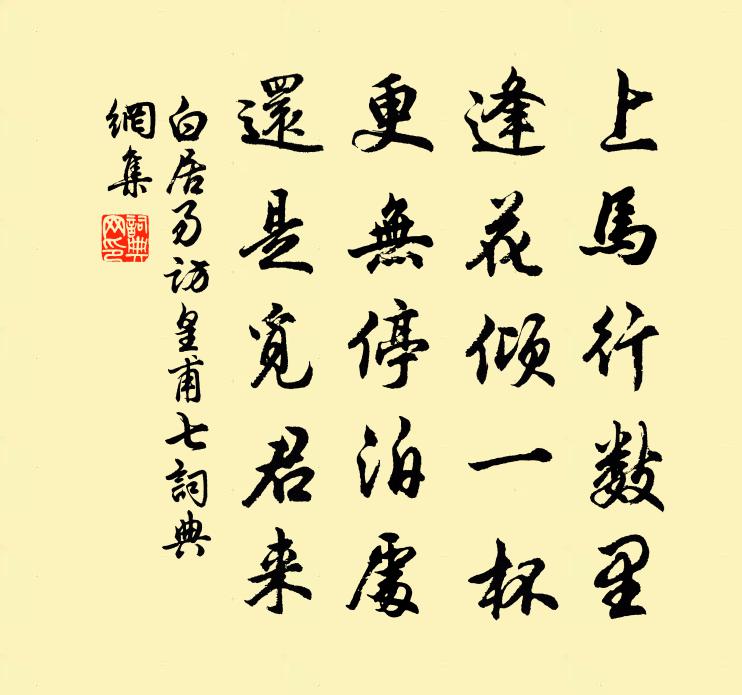 上馬行数里
逢花傾一杯
更無停泊處
還是覓君来
白居易訪皇甫七詞典
網集
詞典
网印